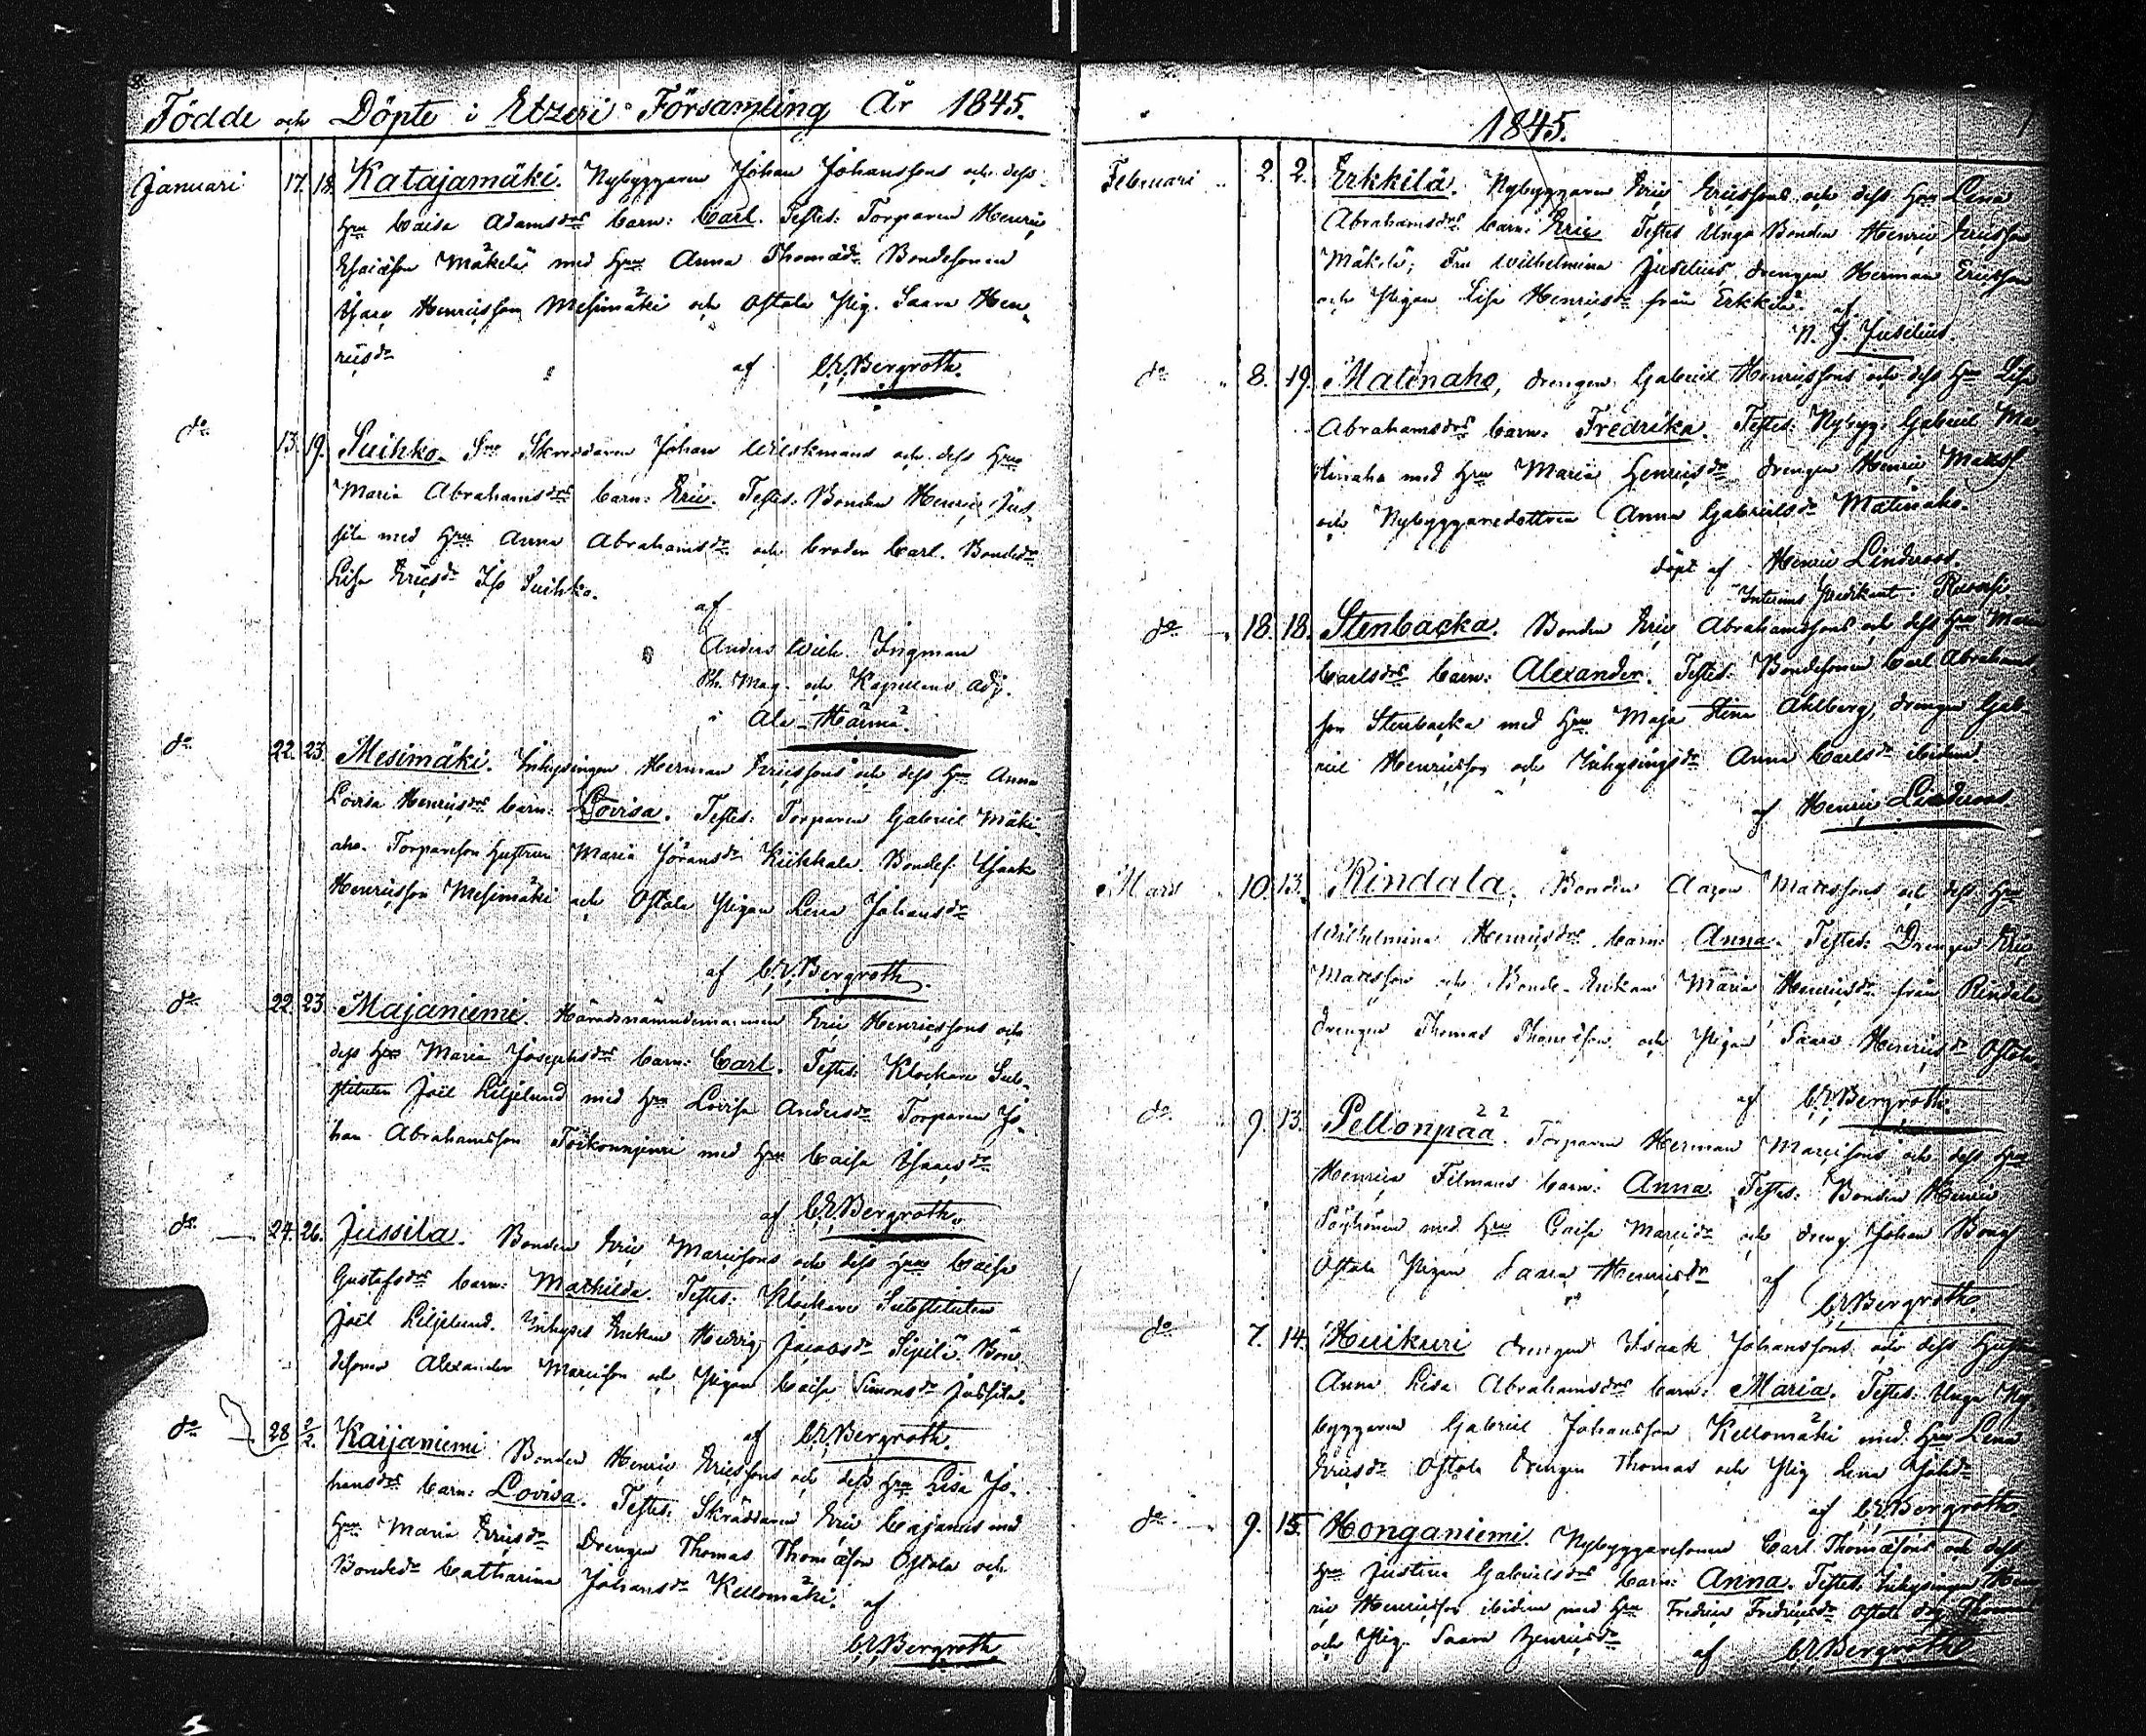 Födde och Döpte i Etzeri Församling År 1845.
Januari 17. 18. Katajamäki. Nybyggaren Johan Johanssons och dess
Hru Caisa Adamsdrs barn: Carl. Testes: Torparen Henric
Esaiæson Mäkelä med Hru Anna Thomædr Bondesonen
Isaac Henricsson Mesimäki och Ostola Pig. Saara Hen-
ricsdr
af C.E. Bergroth.
do 13. 19. Suihko. Skreddaren Johan Wilskmans och dess Hrus
Maria Abrahamsdrs barn: Eric. Testes: Bonden Henric Jus-
sila med Hru Anna Abrahamsdr och brodren Carl. Bondedr
Lisa Ericsdr Suihko.
af
Anders Wilh. Ingman
Ph. Mag. och Kapellans Adj.
i Ala-Härmä.
do 22. 23. Mesimäki. Inhysingen Herman Ericssons och dess Hru Anna
Lovisa Henricsdrs barn: Lovisa. Testes: Torparen Gabriel Mäki-
aho. Torpareson hustrun Maria Jöransdr Kiikkala. Bondes: Isaak
Henricsson Mesimäki och Ostola Pigan Lena Johansdr
af C.E. Bergroth.
do 22. 23. Majaniemi. Häradsnämndemannen Eric Henricssons och
dess Hru Maria Josephsdrs barn: Carl. Testes: Klockare Sub-
stituten Joël Liljelund med Hru Lovisa Andersdr Torparen Jo-
han Abrahamsson Toikonnjemi med Hru Caisa Isaacsdr
af C.E. Bergroth.
do 24. 26. Jussila. Bonden Eric Marcissons och dess Hrus Caisa
Gustafsdrs barn: Mathilda. Testes: Klockare Substituten
Joël Liljelund. Inhyses Enkan Hedvig Jacobsdr Sipilä. Bon-
desonen Alexander Marcisson och Pigan Caisa Simonsdr Jussila.
af C.E. Bergroth.
do 28 2/2. Kaijaniemi Bonden Henric Ericssons och dess Hru Lisa Jo-
hansdrs barn: Lovisa. Testes: Skräddaren Eric Cajanus med
Hru Maria Ericsdr Drengen Thomas Thomæson Ostola och
Bondedr Catharina Johansdr Kellomäki. af
C.E. Bergroth
1845.
Februari 2. 2. Erkkilä. Nybyggaren Eric Ericssons och dess Hru Lena
Abrahamsdrs barn: Eric Testes Unga Bonden Henric Ericsson
Mäkelä; Fru Wilhelmina Juselius, drengen Herman Ericsson
och Pigan Lisa Henricsdr från Erkkilä.
af
N. J. Juselius.
do 8. 19. Matinaho, drengen Gabriel Henricssons och dess Hru Lisa
Abrahamsdrs barn: Fredrika. Testes: Nybygg. Gabriel Ma-
tinaho med Hru Maria Henricsdr drengen Henric Matss.
och Nybyggaredottren Anna Gabrielsdr Matinaho.
döpt af Henric Lindroos.
Interims Predikant
do 18. 18. Stenbacka. Bonden Eric Abrahamssons och dess Hru Maria
Carlsdrs barn: Alexander. Testes: Bondesonen Carl Abrahams-
son Stenbacka med Hru Maja Stina Ahlberg, drengen Gab-
riel Henricsson och Inhysingsdr Anna Carlsdr ibidem
af Henric Lindroos
Mars 10. 13. Rindala. Bonden Aaron Matssons och dess Hru
Wilhelmina Henricsdrs barn: Anna. Testes: Drengen Eric
Matsson och Bonde-Enkan Maria Henricsdr från Rindala
drengen Thomas Thomæson och Pigan Saara Henricsdr Ostola
af C.E. Bergroth.
do 9. 13. Pellonpää. Torparen Herman Marcissons och dess Hru
Henrica Tilmans barn: Anna. Testes: Bonden Henric
med Hru Caisa Marcidr och dreng Johan Bong
Ostola Pigan Saara Henricsdr af
C.E. Bergroth
do 7. 14. Huikuri drengen Isaak Johanssons och dess Hustru
Anna Lisa Abrahamsdrs barn: Maria. Testes: Unga Ny-
byggaren Gabriel Johansson Kellomäki med Hru Lena
Ericsdr Ostola Drengen Thomas och Pig Lena Johdr
af C.E. Bergroth.
do 9. 15. Honganiemi. Nybyggaresonen Carl Thomæsons och dess
Hru Justina Gabrielsdrs barn: Anna. Testes: Inhysingen Hen-
ric Henricsson ibidem med Hru Fredrica Fredricsdr Ostola drg Thomas
och Pig. Saara Henricsdr
af C.E. Bergroth